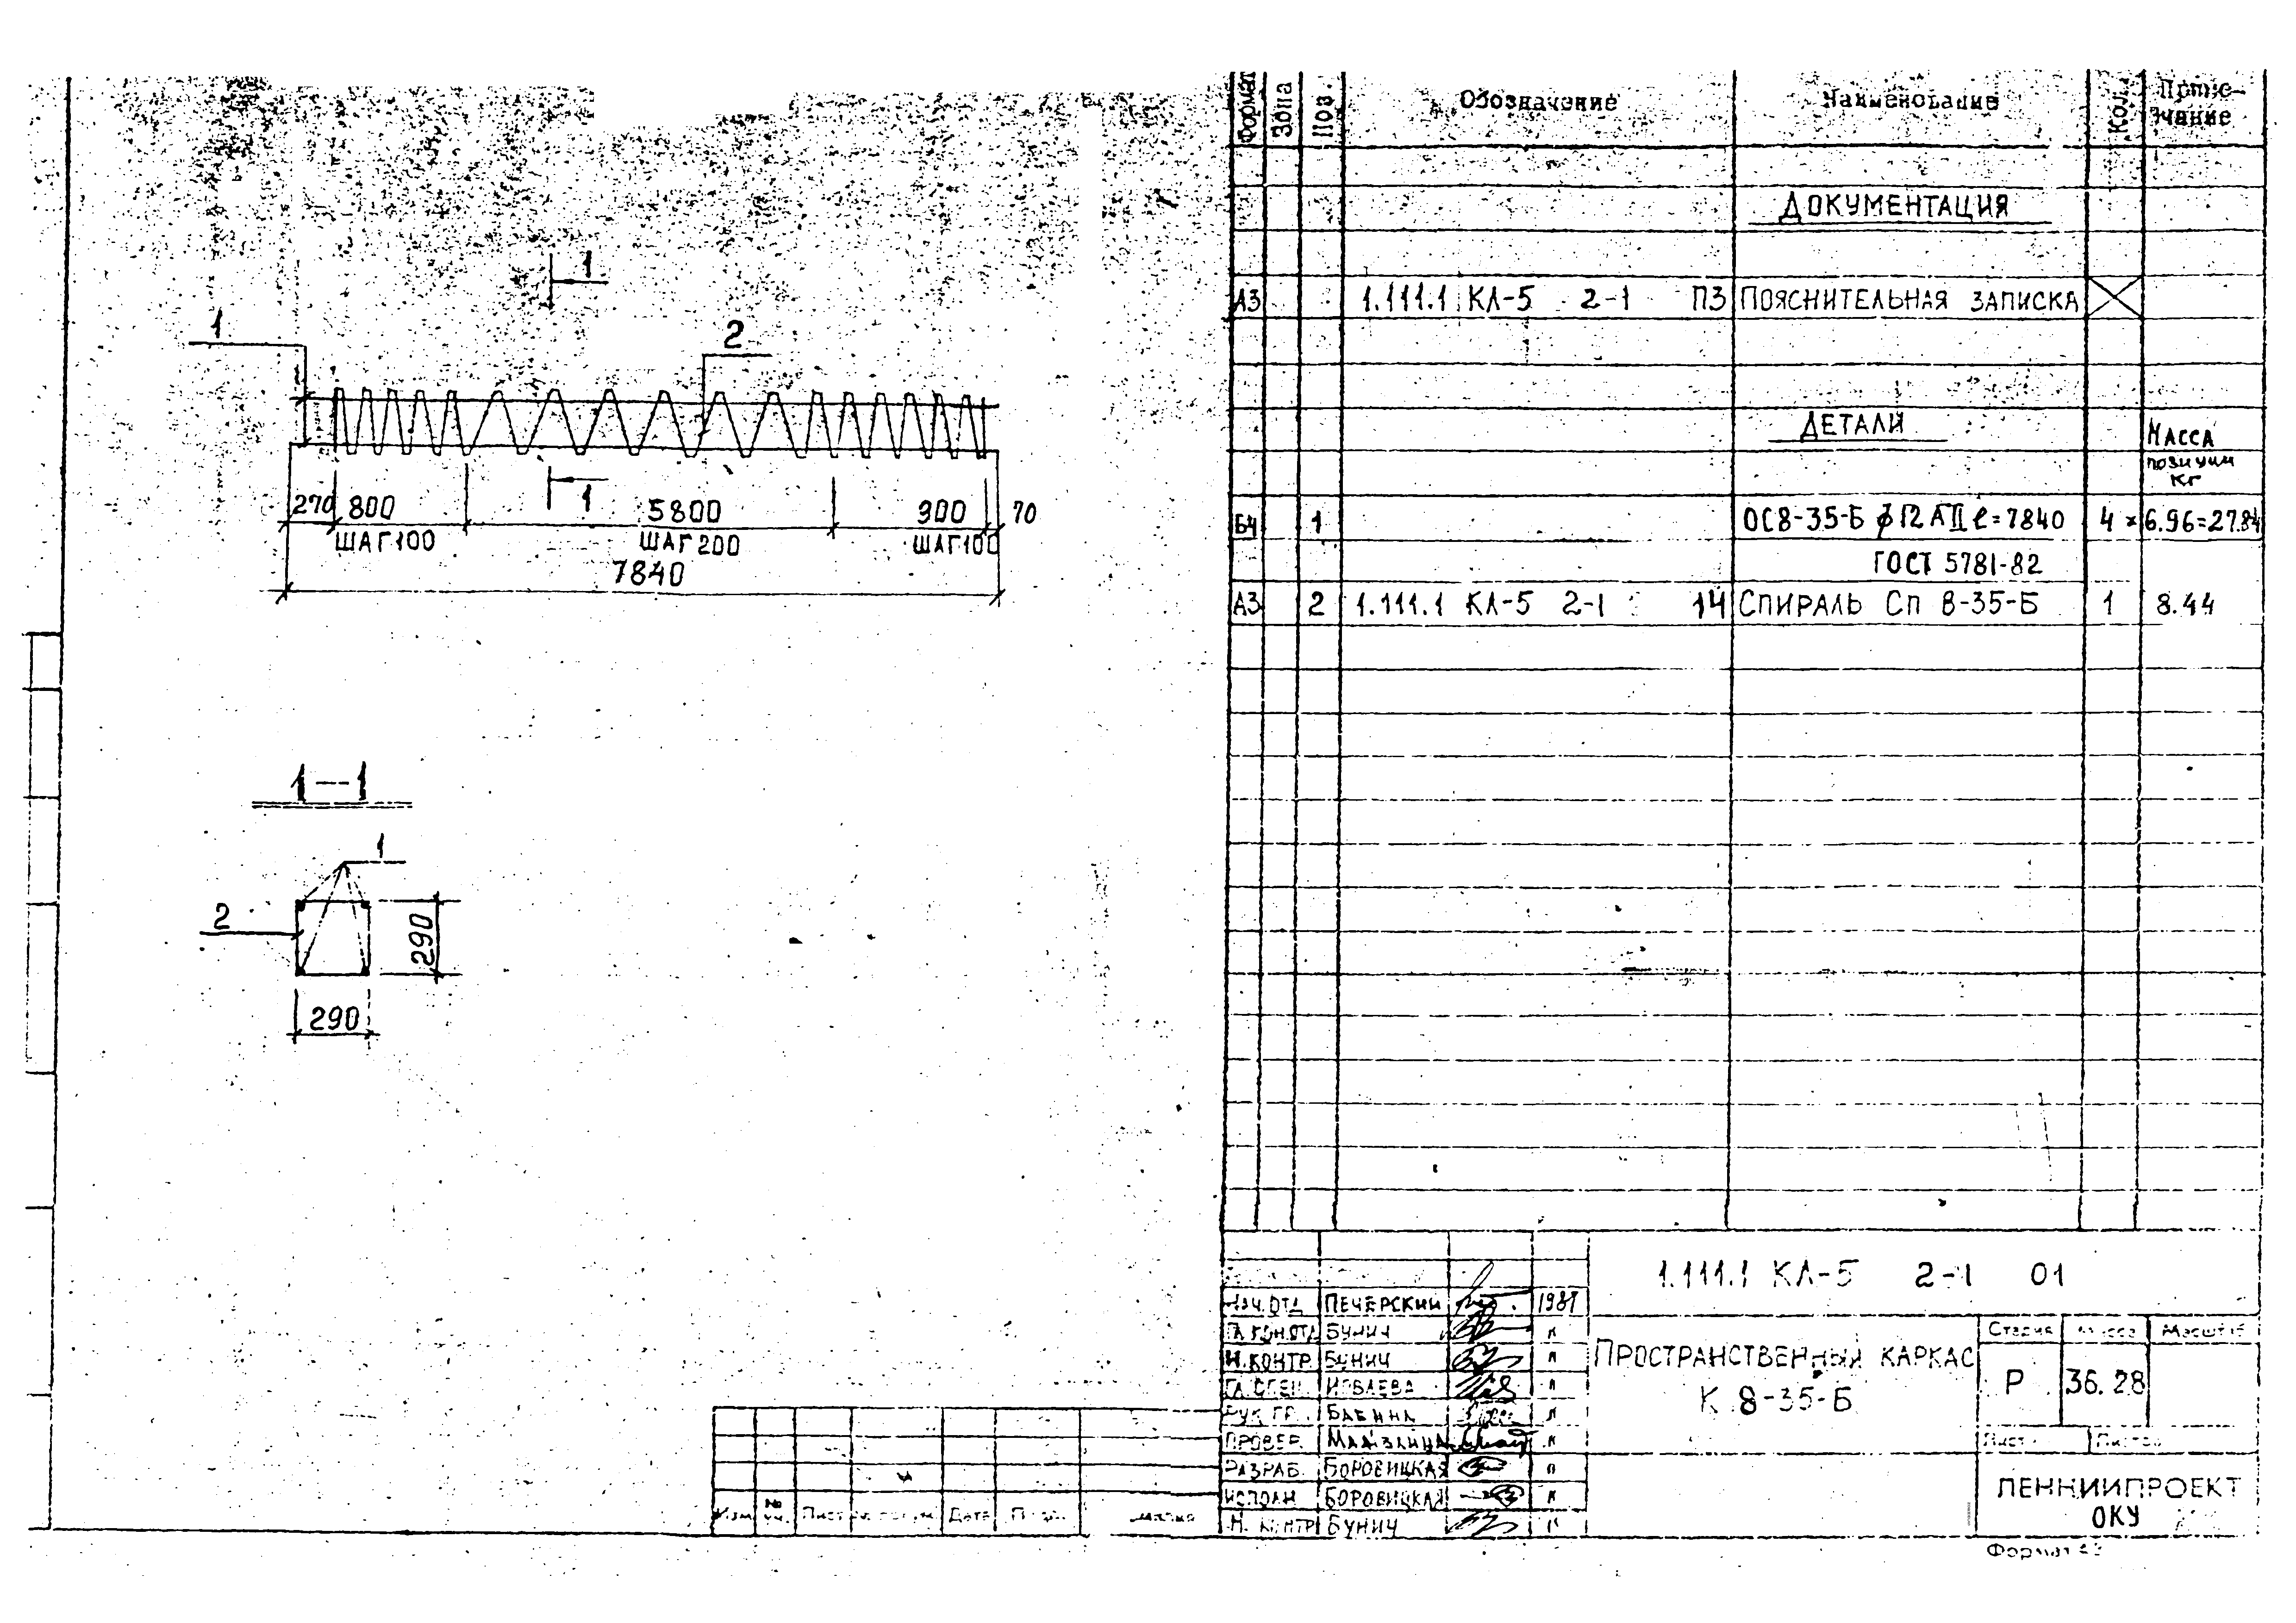 1
1
2
270 800 5800 900 70
ШАГ 100 1 ШАГ 200 ШАГ 100
7840
1—1
1
2
290
290
Формат Зона Поз. Обозначение Наименование Кол. Приме-
чание
ДОКУМЕНТАЦИЯ
А3 1.111.1 КЛ-5 2-1 ПЗ ПОЯСНИТЕЛЬНАЯ ЗАПИСКА
ДЕТАЛИ
МАССА
позиции
кг
БЧ 1 ОС8-35-Б ϕ12 АII ℓ=7840 4 × 6.96=27.84
ГОСТ 5781-82
А3 2 1.111.1 КЛ-5 2-1 14 СПИРАЛЬ Сп 8-35-Б 1 8.44
1.111.1 КЛ-5 2-1 01
НАЧ.ОТД ПЕЧЕРСКИЙ
ГЛ.КОН.ОТД БУНИЧ
Н.КОНТР. БУНИЧ
ГЛ.СПЕЦ.
РУК.ГР. БАБИНА
ПРОВЕР.
РАЗРАБ. БОРОВИЦКАЯ
ИСПОЛН. БОРОВИЦКАЯ
Н. КОНТР БУНИЧ
ПРОСТРАНСТВЕННЫЙ КАРКАС
К 8-35-Б
Стадия Масса Масштаб
Р 36.28
Лист Листов
ЛЕННИИПРОЕКТ
ОКУ
Изм № уч. Лист Дата
Формат А3